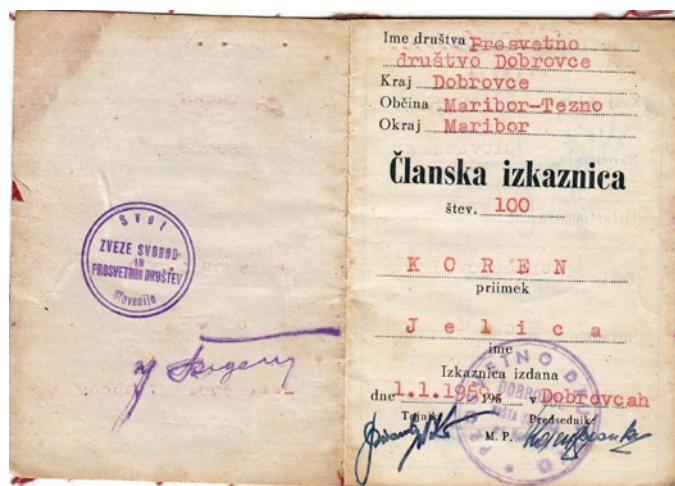 Svet
ZVEZE SVOBOD
IN
PROSVETNIH DRUŠTEV
Slovenije
Ime društva Prosvetno
društvo Dobrovce
Kraj Dobrovce
Občina Maribor-Tezno
Okraj Maribor
Članska izkaznica
štev. 100
KOREN
priimek
Jelica
ime
Izkaznica izdana
dne 1.1.1959 195 v Dobrovcah
Tajnik Predsednik
M. P.